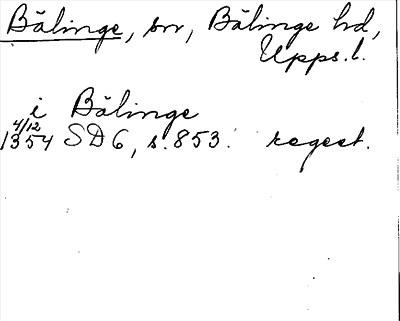 Bälinge, sn, Bälinge hd,
Upps.l.
i Bälinge
4/12
1354 SD 6, s. 853. regest.